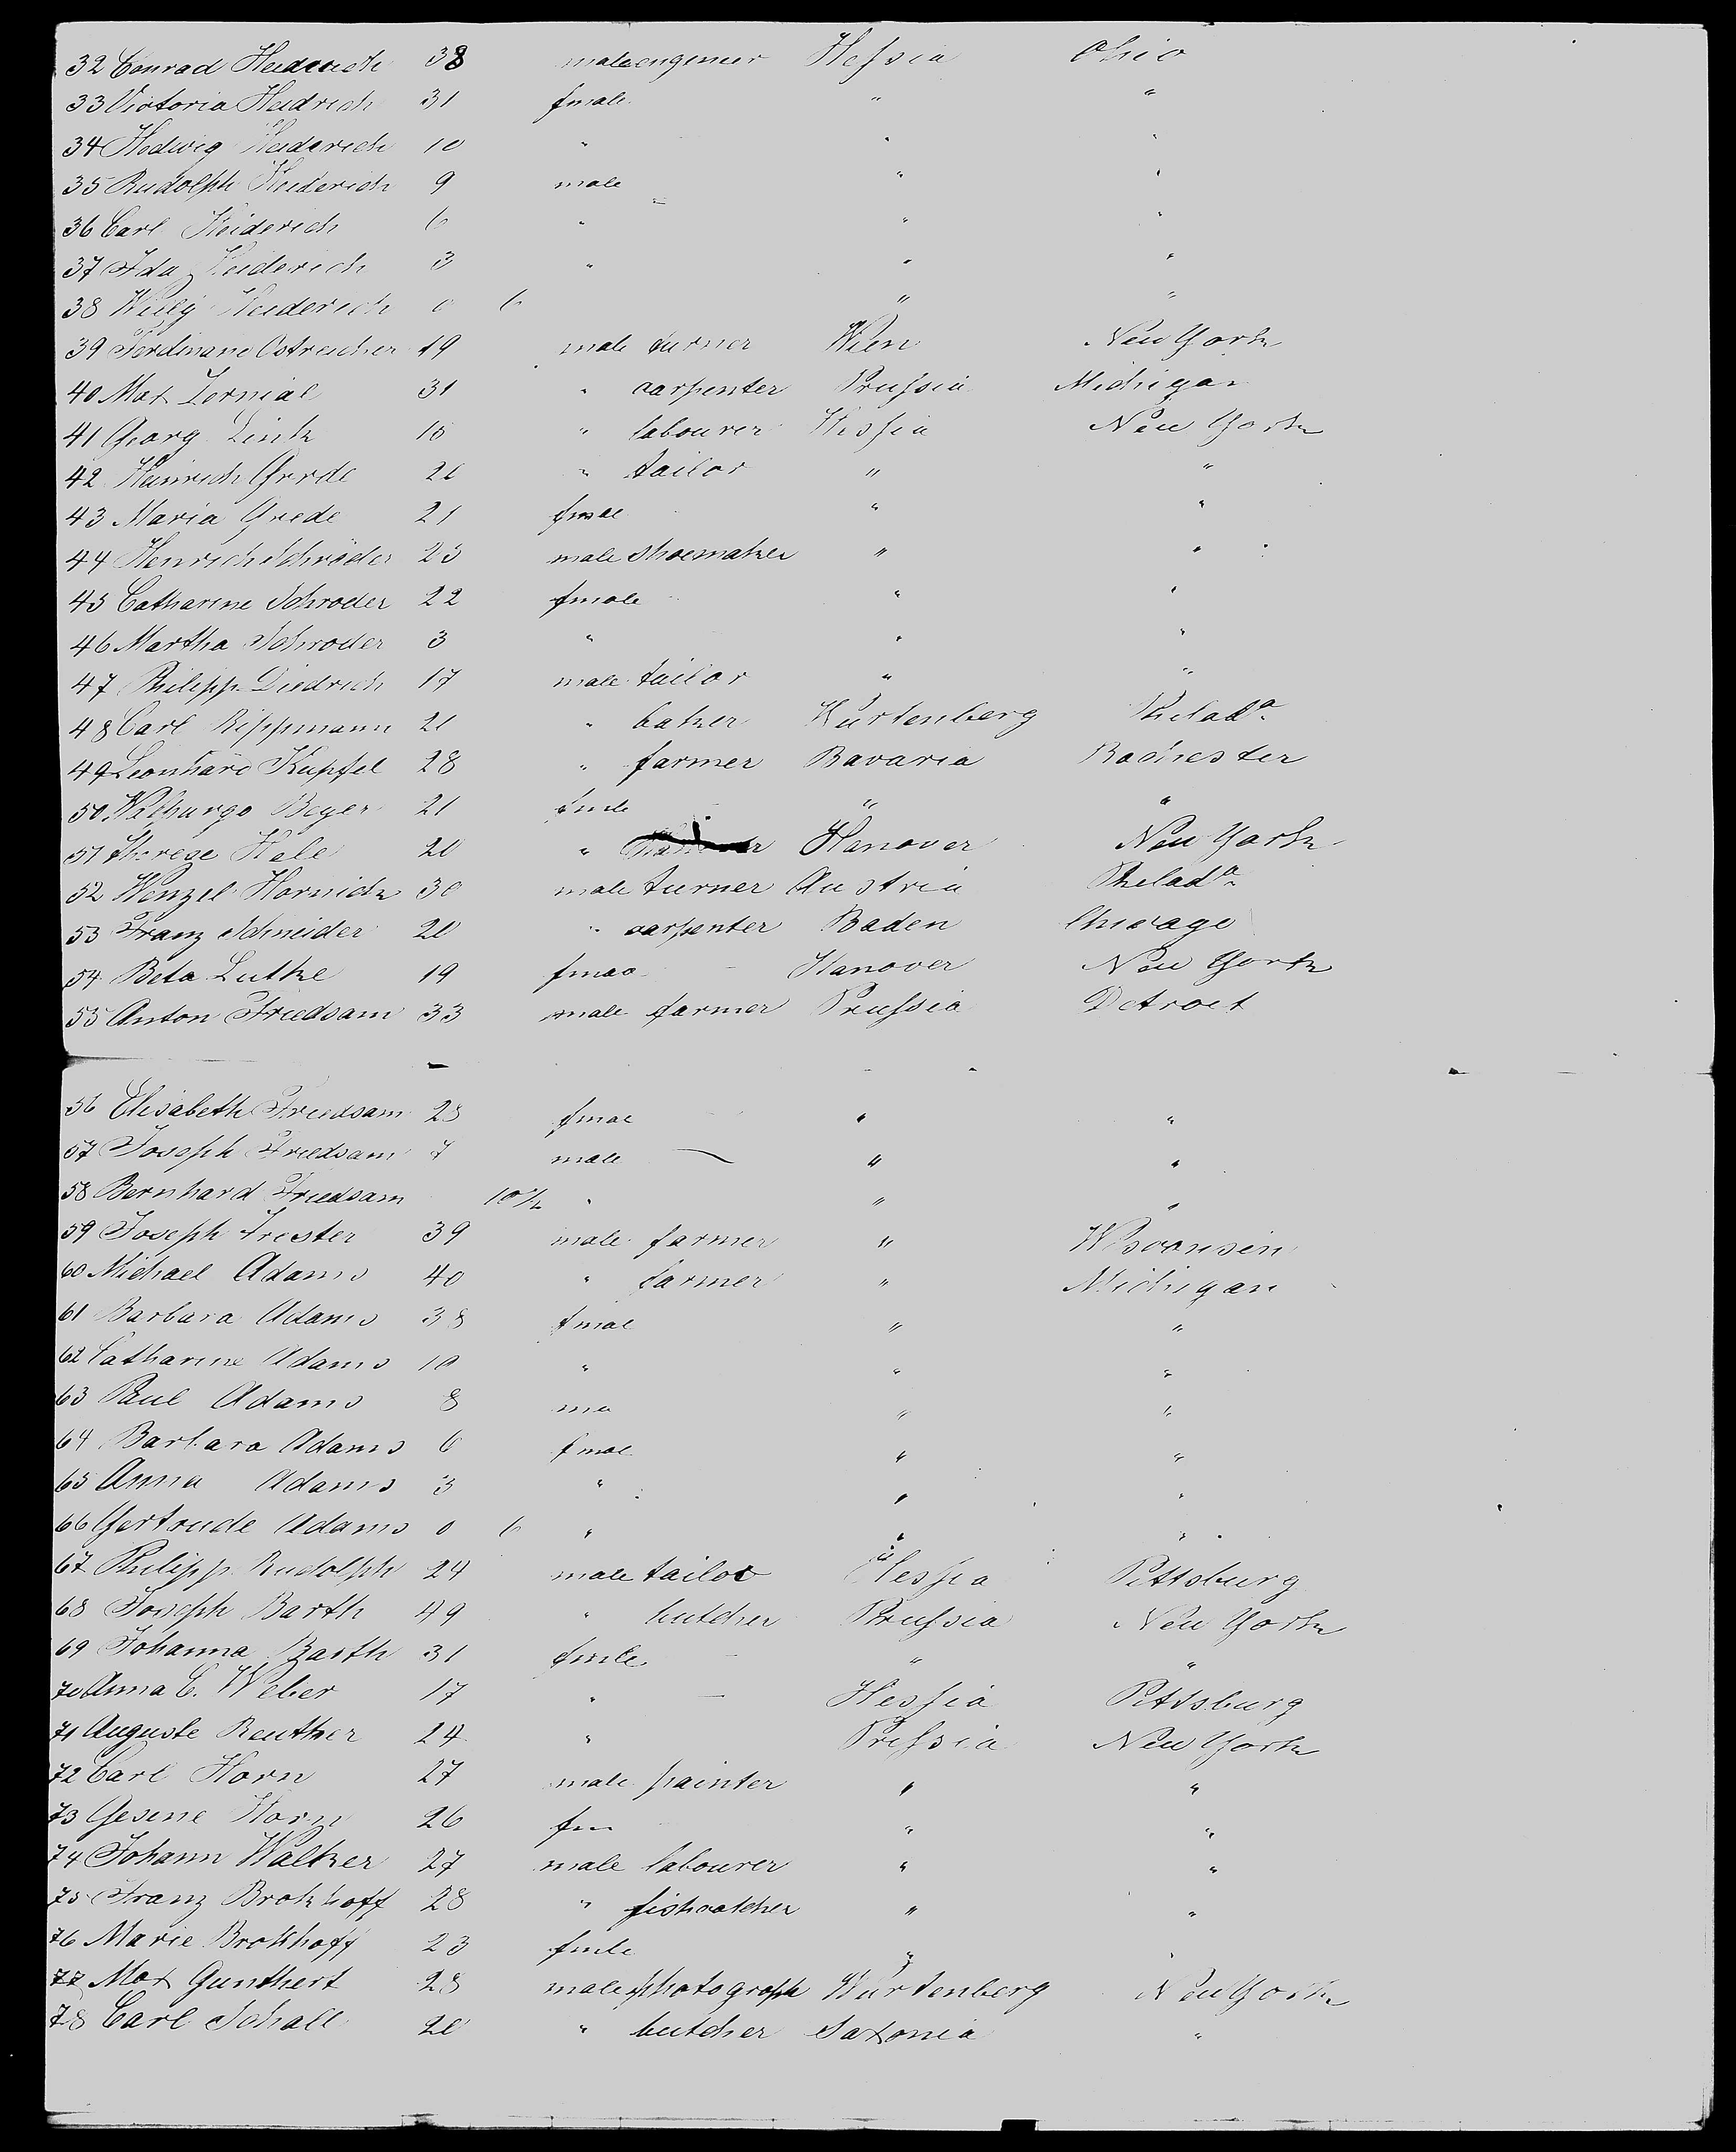 32 Conrad Heiderich 38 male engineer Hessia Ohio
33 Victoria Heidrich 31 fmale " "
34 Hedwig Heiderich 10 " " "
35 Rudolph Heiderich 9 male " "
36 Carl Heiderich 6 " " "
37 Ida Heiderich 3 " " "
38 Willy Heiderich 0 6 " "
39 Ferdinand Ostreicher 19 male turner Wien New York
40 Max Zernial 31 " carpenter Prussia Michigan
41 Georg Link 18 " labourer Hessia New York
42 Heinrich Grede 26 " tailor " "
43 Maria Grede 21 fmale " "
44 Henrich Schröder 23 male shoemaker " "
45 Catharine Schroder 22 fmale " "
46 Martha Schroder 3 " " "
47 Philipp Diedrich 17 male tailor " "
48 Carl Rippmann 21 " baker Wurtenberg Philada
49 Leonhard Kupfel 28 " farmer Bavaria Rochester
50 Walburga Beyer 21 fmle " "
51 Therese Hale 20 " Hanover New York
52 Wenzel Hornick 30 male turner Austria Philada
53 Franz Schneider 20 " carpenter Baden Chicago
54 Beta Lutke 19 fmae Hanover New York
55 Anton Friedsam 33 male farmer Prussia Detroit
56 Elisabeth Friedsam 28 fmae " "
57 Joseph Friedsam 7 male " "
58 Bernhard Friedsam 10½ " " "
59 Joseph Trester 39 male farmer " Wisconsin
60 Michael Adams 40 " farmer " Michigan
61 Barbara Adams 38 fmae " "
62 Catharine Adams 10 " " "
63 Paul Adams 8 ma " "
64 Barbara Adams 6 fmae " "
65 Anna Adams 3 " " "
66 Gertrude Adams 0 6 " " "
67 Philipp Rudolph 24 male tailor Hessia Pittsburg
68 Joseph Barth 49 " butcher Prussia New York
69 Johanna Barth 31 fmle " "
70 Anna C. Weber 17 " Hessia Pittsburg
71 Auguste Reuther 24 " Prussia New York
72 Carl Horn 27 male painter " "
73 Gesine Horn 26 fm " "
74 Johann Walker 27 male labourer " "
75 Franz Brokhoff 28 " fishcatcher " "
76 Marie Brokhoff 23 fmle " "
77 Max Gunthert 28 male photograph Wurtenberg New York
78 Carl Schall 20 " butcher Saxonia "